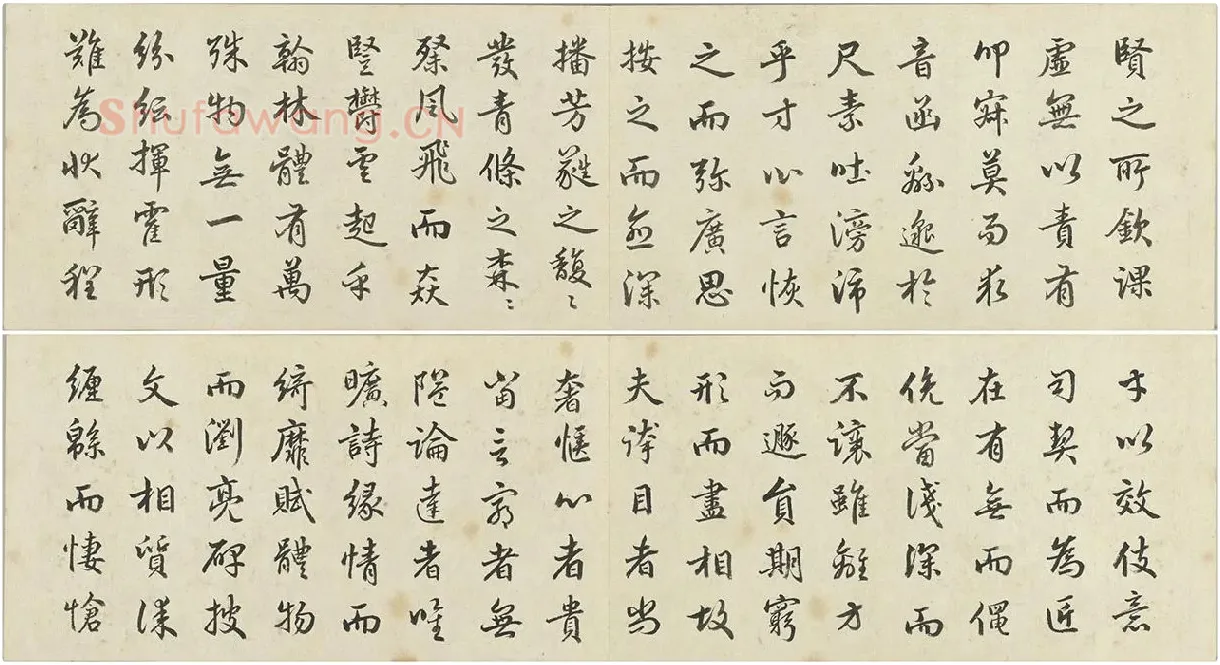 賢之所欽課
虛無以責有
叩寂莫而求
音函緜邈於
尺素吐滂沛
乎寸心言恢
之而弥廣思
按之而愈深
播芳蕤之馥〻
發青條之森〻
粲風飛而猋
豎鬱雲起乎
翰林體有萬
殊物無一量
紛紜揮霍形
難為狀辭程
才以效伎意
司契而為匠
在有無而僶
俛當淺深而
不讓雖離方
而遯員期窮
形而盡相故
夫誇目者尚
奢愜心者貴
當言窮者無
隘論達者唯
曠詩緣情而
綺靡賦體物
而瀏亮碑披
文以相質誄
纏緜而悽愴
Shufawang.CN